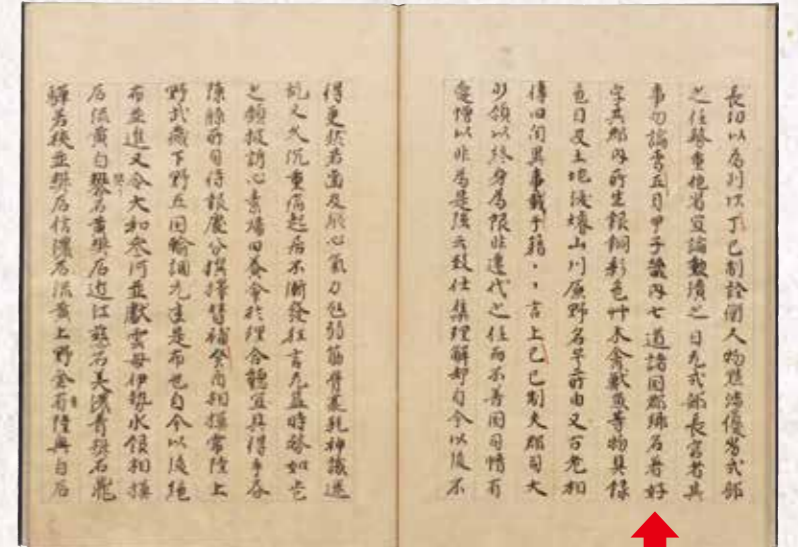 長切以為別式丁巳制銓衡人物黜陟優劣式部
之任務重他省宜論勲績之日无式部長官者其
事勿論焉五月甲子畿内七道諸国郡郷名着好
字其郡内所生銀銅彩色艸木禽獣魚等物具録
色目及土地沃塉山川原野名号所由又古老相
傳旧聞異事載于籍言上己巳制夫郡司大
少領以終身為限非遷代之任而不善国司情有
愛憎以非為是强云致仕集理解却自今以後不
得更然若歯及縦心氣力尫弱筋骨衰耗神識迷
乱又久沉重病起居不漸發狂言无益時務如此
之類披訴心素歸田養命於理合聴宜具得手書
陳牒所司待報處分撰擇替補癸酉相摸常陸上
野武蔵下野五国輸調元来是布也自今以後絁
布並進又令大和参河並獻雲母伊勢水銀相摸
石流黄白礬石黄礬石近江慈石美濃青礬石飛
騨若狭並礬石信濃石流黄上野金青陸奥白石